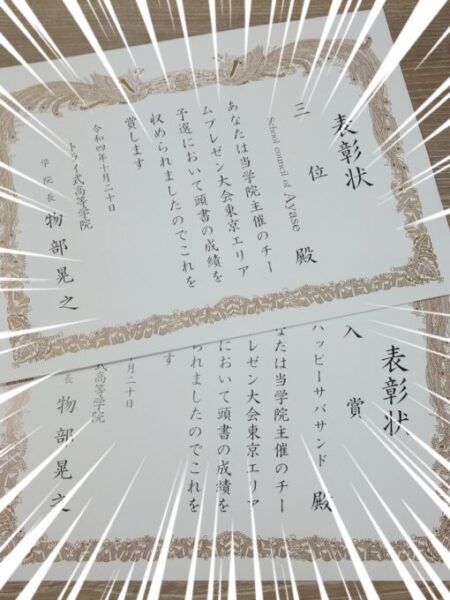 表彰状
三位
School council of Ayase 殿
あなたは当学院主催のチー
ムプレゼン大会東京エリア
予選において頭書の成績を
収められましたのでこれを
賞します
令和四年十月二十日
トライ式高等学院
学院長 物部晃之
表彰状
入賞
ハッピーサバサンド 殿
なたは当学院主催のチー
レゼン大会東京エリア
において頭書の成績を
られましたのでこれを
す
月二十日
式高等学院
長 物部晃之